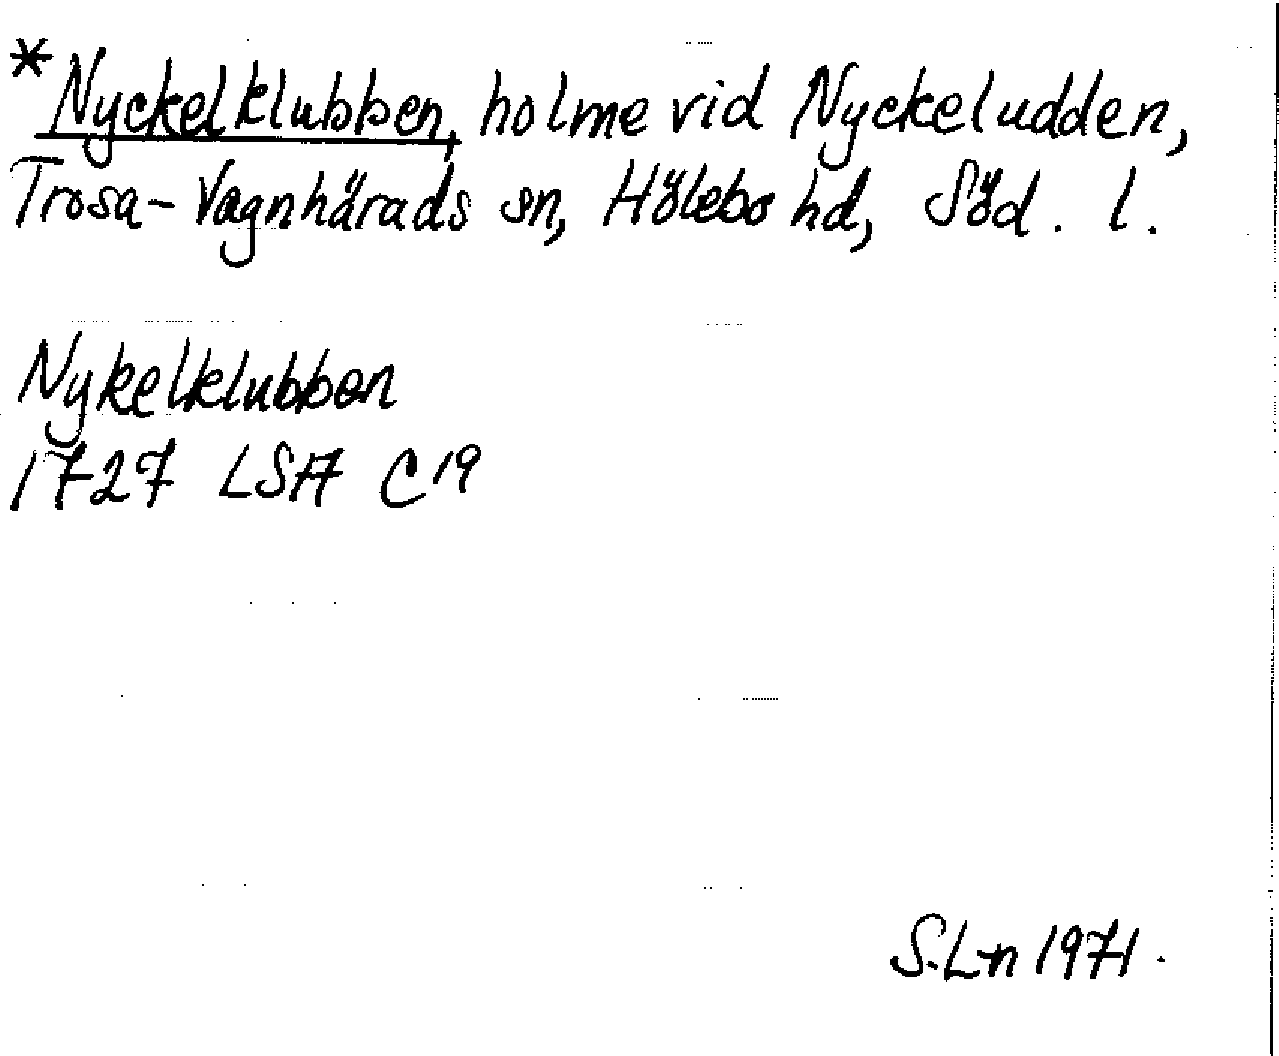 *Nyckelklubben, holme vid Nyckeludden,
Trosa-Vagnhärads sn, Hölebo hd, Söd. l.
Nykelklubben
1727 LSA C19
S.L-n 1971.